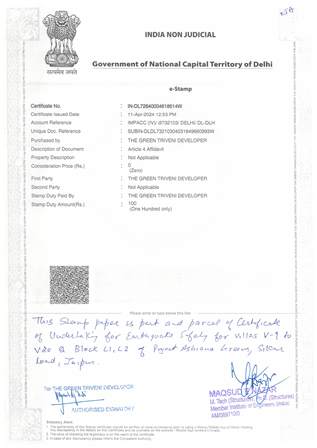 INDIA NON JUDICIAL
सत्यमेव जयते
Government of National Capital Territory of Delhi
e-Stamp
Certificate No. : IN-DL72640004618514W
Certificate Issued Date : 11-Apr-2024 12:53 PM
Account Reference : IMPACC (IV)/ dl732103/ DELHI/ DL-DLH
Unique Doc. Reference : SUBIN-DLDL73210304031849660993W
Purchased by : THE GREEN TRIVENI DEVELOPER
Description of Document : Article 4 Affidavit
Property Description : Not Applicable
Consideration Price (Rs.) : 0
(Zero)
First Party : THE GREEN TRIVENI DEVELOPER
Second Party : Not Applicable
Stamp Duty Paid By : THE GREEN TRIVENI DEVELOPER
Stamp Duty Amount(Rs.) : 100
(One Hundred only)
Please write or type below this line
This Stamp paper is part and parcel of Certificate
of Undertaking for Earthquake Safety for villas V-1 to
V20 & Block L1, L2 of Project Ashiana Greens,
Road, Jaipur
For THE GREEN TRIVENI DEVELOPER
AUTHORISED SIGNATORY
MAQSUD E NAZAR
M. Tech (Structures)
Member Institution of Engineers (India)
Statutory Alert: